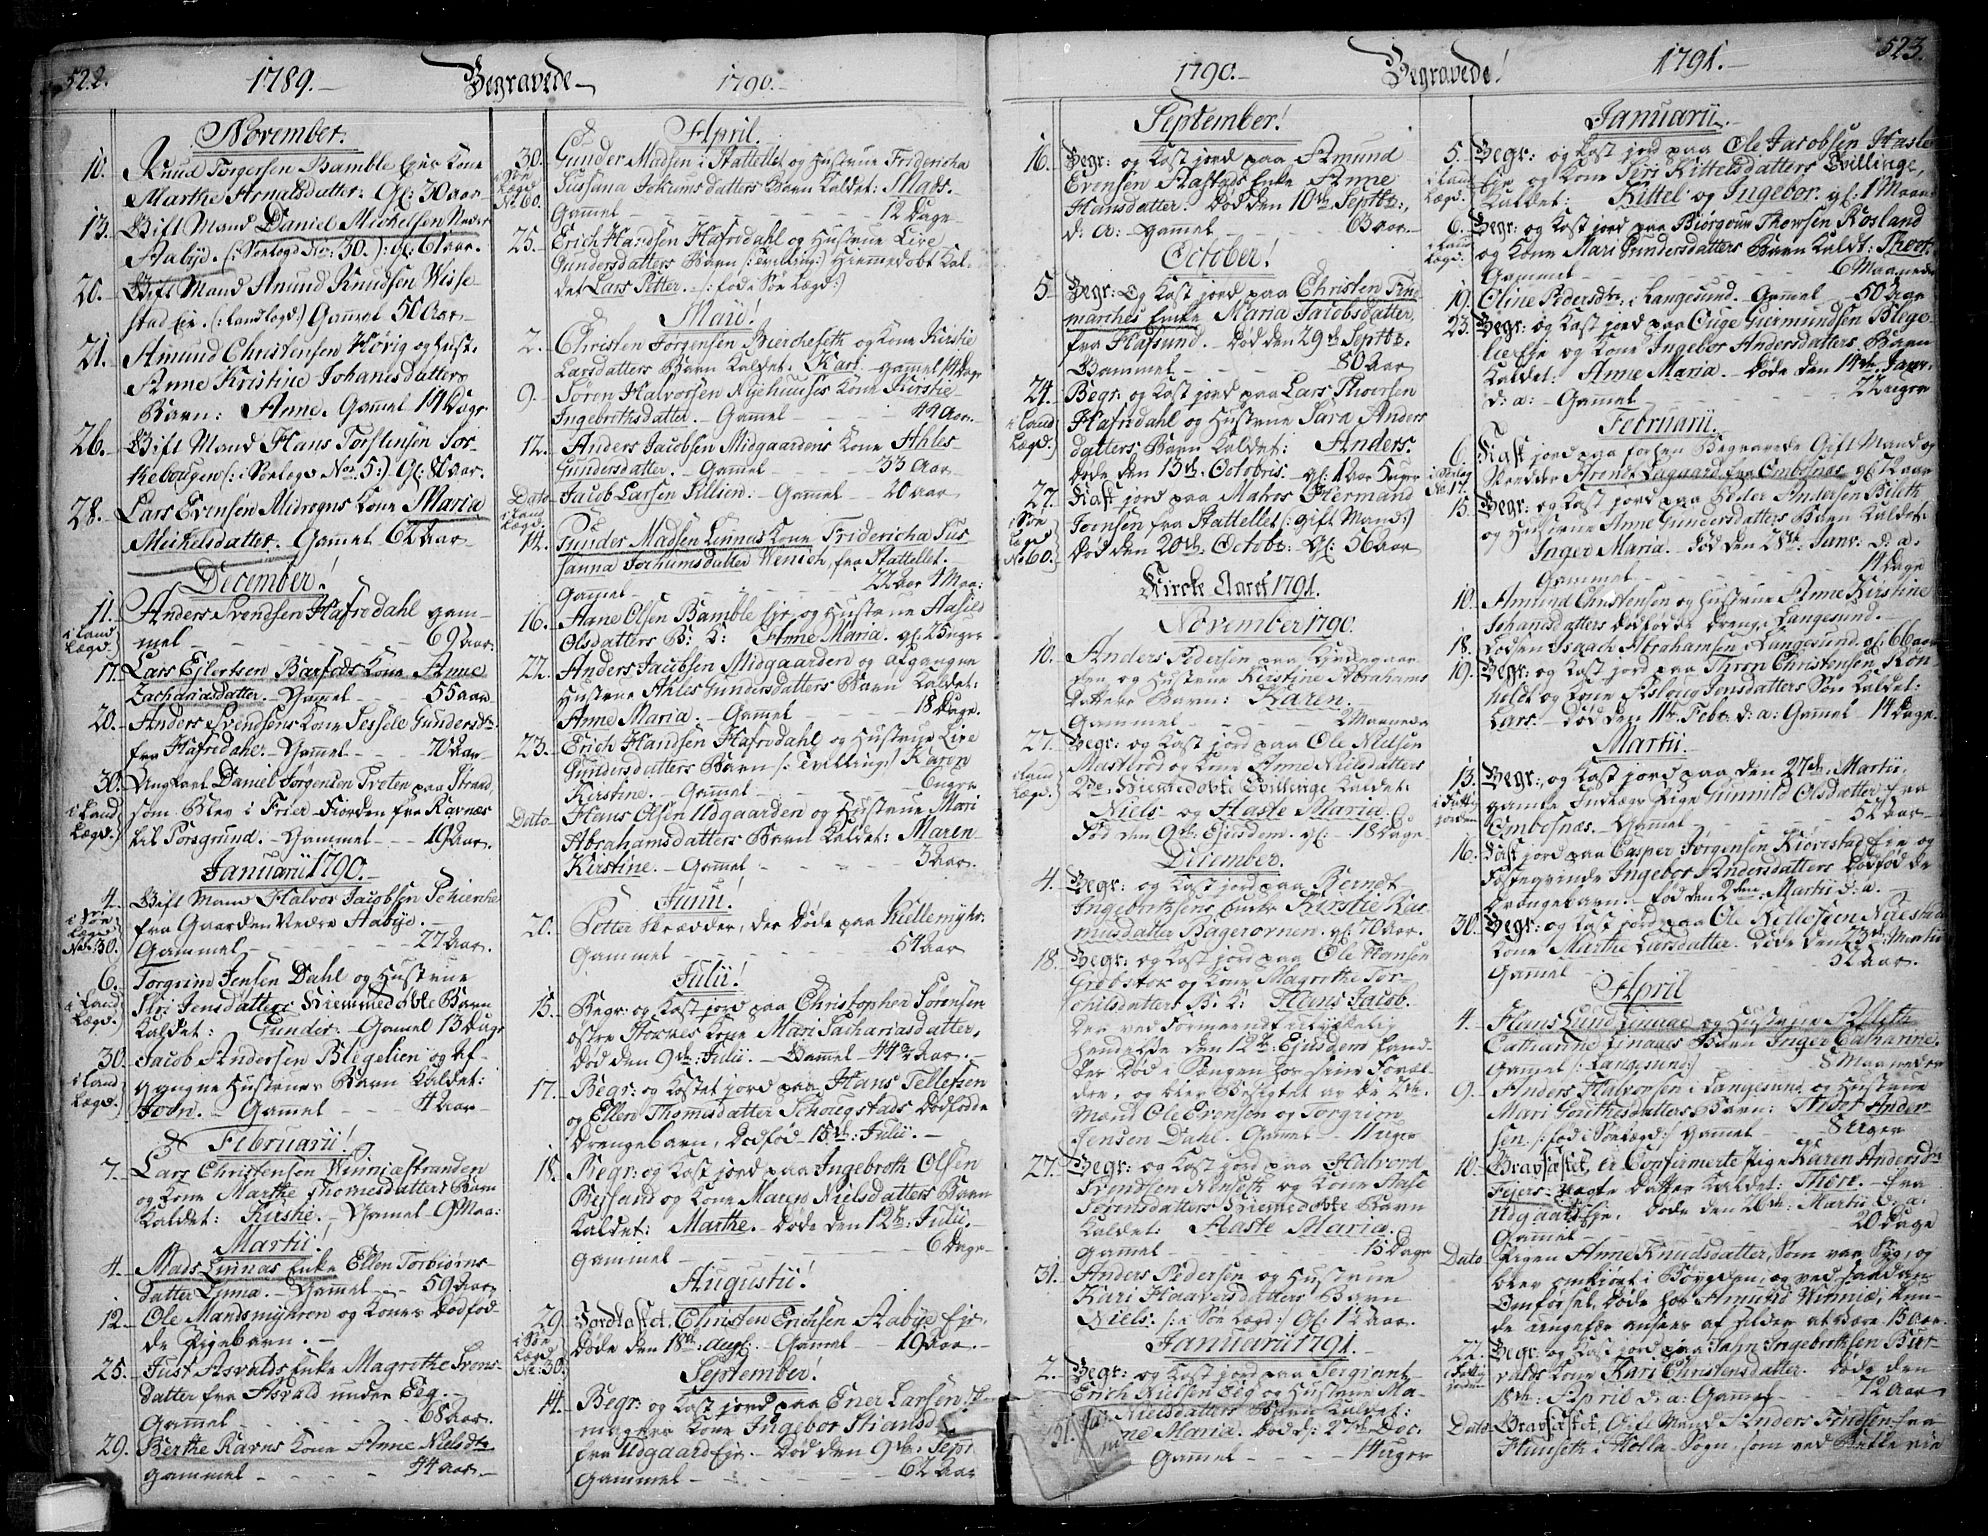 522. 1789. Begravede 1790.
November.
10. Knud Torgersen Bamble Ejes Kone
Marthe Arnalsdatter. Gl: 30 aar
13. Gift Mand Daniel Michelsen Nedre
Aabÿd. (: Søelegd No: 30. ) gl: 61 aar.
20. Gift Mand Amund Knudsen Wisse-
stad Eje. (: landlegd:) Gammel 50 Aar
21. Amund Christensen Hövig og Hust:
Anne Kristine Johanisdatters
Barn: Anne. Gammel 14 Dage
26. Gift Mand Hans Torstensen Tor-
kebougen (: Søelegd No: 5:) Gl: 80 aar.
28. Lars Evensen Midregns Kone Maria
Meikelsdatter. Gammel 62 aar
December!
11. Anders Svendsen Hafredahl gam-
i Land
Lægd. mel - - - 69 aar.
17. Lars Ejlertsen Barfods Kone Anne
Zachariædatter. Gammel - 55 aar
20. Anders Svendsens Kone Sessele Gundersdtr
fra Hafredahl. Gammel - - 70 aar
30. Ung Karl Daniel Jörgensen Tveten paa Strand,
i Land
Lægd. som Blev i Frier-Fiorden fra Ravnæs
til Porsgrund. Gammel - - 19 aar.
Januarii 1790.
4. Gift Mand Halvor Jacobsen Schierke
i Søe
Lægd
No: 30. fra Gaarden Nedre Aabÿe.
Gammel - - - 27 aar.
6. Torgrim Jensen Dahl og Hustrue
i Land
Lægd. Siri Jensdatters Hiemmedøbte Barn
kaldet: Gunder. Gammel 13 Dage
30. Jacob Andersen Blegelien og Af-
i Land
Lægd. gangne Hustrues Barn kaldet:
Joen. - Gammel - - 4 aar
Februarii!
7. Lars Christensen Winniestranden
og Kone Marthe Thomesdatters Barn
kaldet: Kirstie. - Gammel 9 Maa:
Martii!
4. Mads Linnæs Enke Ellen Torbiørns-
datter Linnæ. - Gammel - 59 aar
12. Ole Mandsmÿhren og Kones Dødfød-
de Pigebarn. -
25. Just Asvalds Enke Magrethe Irens-
datter fra Asvald under Eeg.
Gammel - - - 68 aar.
29. Berthe Ravns Kone Anne Nielsdtr
Gammel - - - 44 aar.
April.
30. Gunder Madsen i Stattellet og Hustrue Fridericha
i Søe
Lægd
No: 60. Sussana Jokumsdatters Barn kaldet: Mads.
Gammel - - - 12 Dage
25. Erich Hansen Hafredahl og Hustrue Live
Gundersdatters Barn (: Tvilling:) Hiemmedøbt kal-
det Lars Petter. - (: føde Søe Lægd:)
Maii!
2. Christen Jörgensen Bierckeseth og Kone Kirstie
Larsdatters Barn kaldet: Kari - gammel 14 Dage
9. Sören Halvorsen Nÿehuuses Kone Kirstie
Ingebrethsdatter. - Gammel - - 44 aar.
12. Anders Jacobsen Midgaardens Kone Ahles
Gundersdatter. - Gammel - - 33 aar
Dato Jacob Larsen Tillien. - Gammel - 20 aar
i Land
Lægd.
14. Gunder Madsen Linnæs Kone Fridericha Sus-
sanna Jochumsdatter Wenich, fra Stattellet.
Gammel - - - 22 aar 1 Maa:
16. Aane Olsen Bamble Eje og Hustrue Aasild
Olsdatters B: K: Anne Maria. gl: 25 uger
22. Anders Jacobsen Midgaarden og afgangne
Hustrue Ahles Gundersdatters Barn kaldet:
Anne Maria. - Gammel - - 18 Dage.
23. Erich Hansen Hafredahl og Hustrue Live
Gundersdatters Barn (: Tvilling:) Karen
Kirstine. - Gammel - - 6 uger
Dato Hans Olsen Udgaarden og Hustrue Mari
Abrahamsdatters Barn kaldet: Maren
Kirstine. - Gammel - - 3 aar.
Junii!
20. Petter Skrædder, der døde paa Killemÿhr.
Gammel - - - 54 aar
Julii!
15. Begr: og Kast jord paa Christopher Sørensen
Østre Stokkes Kone Mari Zachariasdatter,
død den 9de Julii. - Gammel - 44 3/4 aar. -
17. Begr: og Kastet jord paa Hans Tellefsen
og Ellen Thomisdatter Schougstads dødfødde
Drengebarn, dødfød 15de Julii. -
18. Begr: og Kast jord paa Ingebreth Olsen
Rejsland og Kone Maren Nielsdatters Barn
kaldet: Marthe. - døde den 12te Julii. -
Gammel - - - 6 Dage
Augustii!
29. Jordfæstet Christen Erichsen Aabÿe Eje
i Søe
Lægd
No: 30. døde den 18de aug. - Gammel - 19 aar. -
September!
14. Begr: og Kast jord paa Ener Larsen
magers Kone Ingebor Stiansd
fra Udgaards Eje. - Død den 9de Sept
Gammel - - - 62 aar
1790. Begravede! 1791. 523.
September!
16. Begr: og Kast jord paa Amund
Evensen Stafstads Enke Anne
Hansdatter. Død den 10de Septbr:
d: a: - gammel - - 63 aar. -
October!
5. Begr: og Kast jord paa Christen Find
marches Enke Maria Jacobsdatter
fra Hafsund. Død den 29de Septbr.
Gammel - - - 80 aar
24. Begr: og Kast jord paa Lars Thorsen
i Land
Lægd. Hafredahl og Hustrue Sara Anders
datters Barn kaldet: Anders.
døde den 13de Octobris. - gl: 1 aar 5 uger
27. Kast jord paa Matros Hermand
i Søe
Lægd
No: 60. Jonsen fra Stattellet (: gift Mand:)
Død den 20de Octob: Gl: 56 aar
Kircke Aaret 1791.
November 1790.
10. Anders Pedersen paa Kirkegaar
den og Hustrue Kirstine Abrahams
datters Barn: Karen.
Gammel - - - 2 Maaneder
27. Begr: og Kast jord paa Ole Nielsen
i Land
Lægd. Masterød og Kone Anne Nielsdatters
2de Hiemedøbte Tvillinge kaldet:
Niels og Haste Maria.
Fød den 9de Ejusdem. gl: - 18 Dage
December.
4. Begr: og Kast jord paa Berndt
Ingebrethsens Enke Kirstie Ras-
musdatter Bagerovnen. gl: 70 aar.
18. Begr: og Kast jord paa Ole Hansen
Grobstok og Kone Magrethe Tor-
chilsdatters B: K: Hans Jacob.
der ved Formeendt ulykkelig
hendelse den 12te Ejusdem fand-
tes død i Sengen hos sine Foræl-
dre, og blev Besigtet af de 2de
Mænd Ole Evensen og Torgrim
Jensen Dahl. Gammel - 11 uger
27. Begr: og Kast jord paa Halvord
Svendsen Nenseth og Kone Aase
Sørensdatters Hiemedøbte Barn
kaldet: Aaste Maria.
Gammel - - - 15 Dage
31. Anders Pedersen og Hustrue
Kari Haaversdatters Barn
Niels: (: i Søe Lægd:) Gl: 12 aar.
Januarii 1791.
2. Begr: og Kast jord paa Sergiant
Erich Nielsen Eeg og Hustrue Ma-
Nielsdatters Barn kaldet:
ne Maria. Død d: 27de Dec:
Gammel - - 11 uger
Januarii.
5. Begr: og Kast jord paa Ole Jacobsen Hasle
i Land
Lægd. Eje og Kone Siri Kittelsdatters Tvillinge,
kaldet: Kittel og Ingebor. gl: 1 Maaned
6. Begr: og Kast jord paa Biörgoun Thorsen Rosland
i Land
Lægd. og Kone Mari Gundersdatters Barn kaldt: Thore.
Gammel - - - 6 Maaneder
10. Oline Pedersdtr, i Langesund. Gammel - 50 Dage
23. Begr: og Kast jord paa Ouge Giermundsen Blege-
lie Eje og Kone Ingebor Andersdatters Barn
kaldet: Anne Maria. - Døde den 14de Janr:
d: a: - Gammel - - 22 uger
Februarii.
6. Kast jord paa forhen Begravede Gift Mand og
i Søelægd
No: 17. Arendt Aagaard fra Ombesnæs. gl: aar
13. Begr: og Kast jord paa Peder Andersen Bileth
og Hustrue Anne Gundersdatters Barn kaldet:
Inger Maria. Fød den 28de: Janv: d: a:
Gammel - - - 14 Dage
10. Amund Christensen og Hustrue Anne Kirstine
Johansdatters dødfødde Drenge Langesund. -
18. Lodsen Isaach Abrahamsen Langesund. gl: 66 aar
19. Begr: og Kast jord paa Thron Christensen Røn-
holdt og Kone Aslaug Jensdatters Søn kaldet:
Lars. - Død den 11te Febr. d: a: Gammel - 14 Dage.
Martii.
13. Begr: og Kast jord paa den 27de Martii.
i Fattig
jorden gamle Indlægs Pige Gunnild Olsdatter fra
Ombesnæs. - Gammel - - 52 aar
16. Kast jord paa Casper Jörgensen Kiörestad Eje og
Fæstequinde Ingebor Andersdatters Dødfødde
Drengebarn. - fød den 2den Martii d: a. -
30. Begr: og Kast jord paa Ole Nellesen Nerestad
Kone Marthe Larsdatter. Døde den 23de Martii
Gammel - - - 52 aar.
April
4. Hans Lund Linaae og Hustrue Alleth
Catharine Linaaes Barn Inger Catharine.
Gammel (: Langesund:) - 8 Maaneder
9. Anders Halvorsen i Langesund og Hustrue
Mari Gouthesdatters Barn: Ander-
sen. (: fød i Søelægd:) gammel - 8 uger
10. Gravfæstet, er Confirmerte Pige Karen Andersdtr
Fejers: uægte Datter kaldet: Thore. - fra
Udgaards Eje. Døde den 26de: Martii d: a:
Gammel - - - 20 Dage
Dato Pigen Anne Knudsdatter, som var Syg, og
blev omkiørt i Bøygden, og ved saadan
Omførsel, døde hos Amund Winniæ, kun-
de ungefær ansees af Alder at være 15 aar.
22. Begr: og Kast jord paa Jahn Ingebrethsen Bier-
i Fattig
jorden valdt Kone Kari Christensdatter. Døde den
18de: April d: a: Gammel - 72 aar
Dato Gravfæstet, Gift Mand Anders Findsen fra
Hunseth i Holla-Sogn, som ved